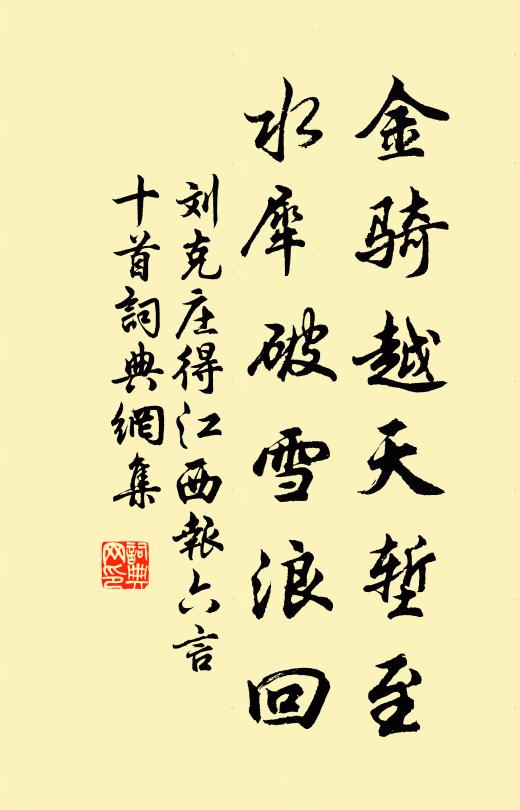 金骑越天堑至
水犀破雪浪回
刘克庄得江西报六言
十首詞典網集
詞典
网印